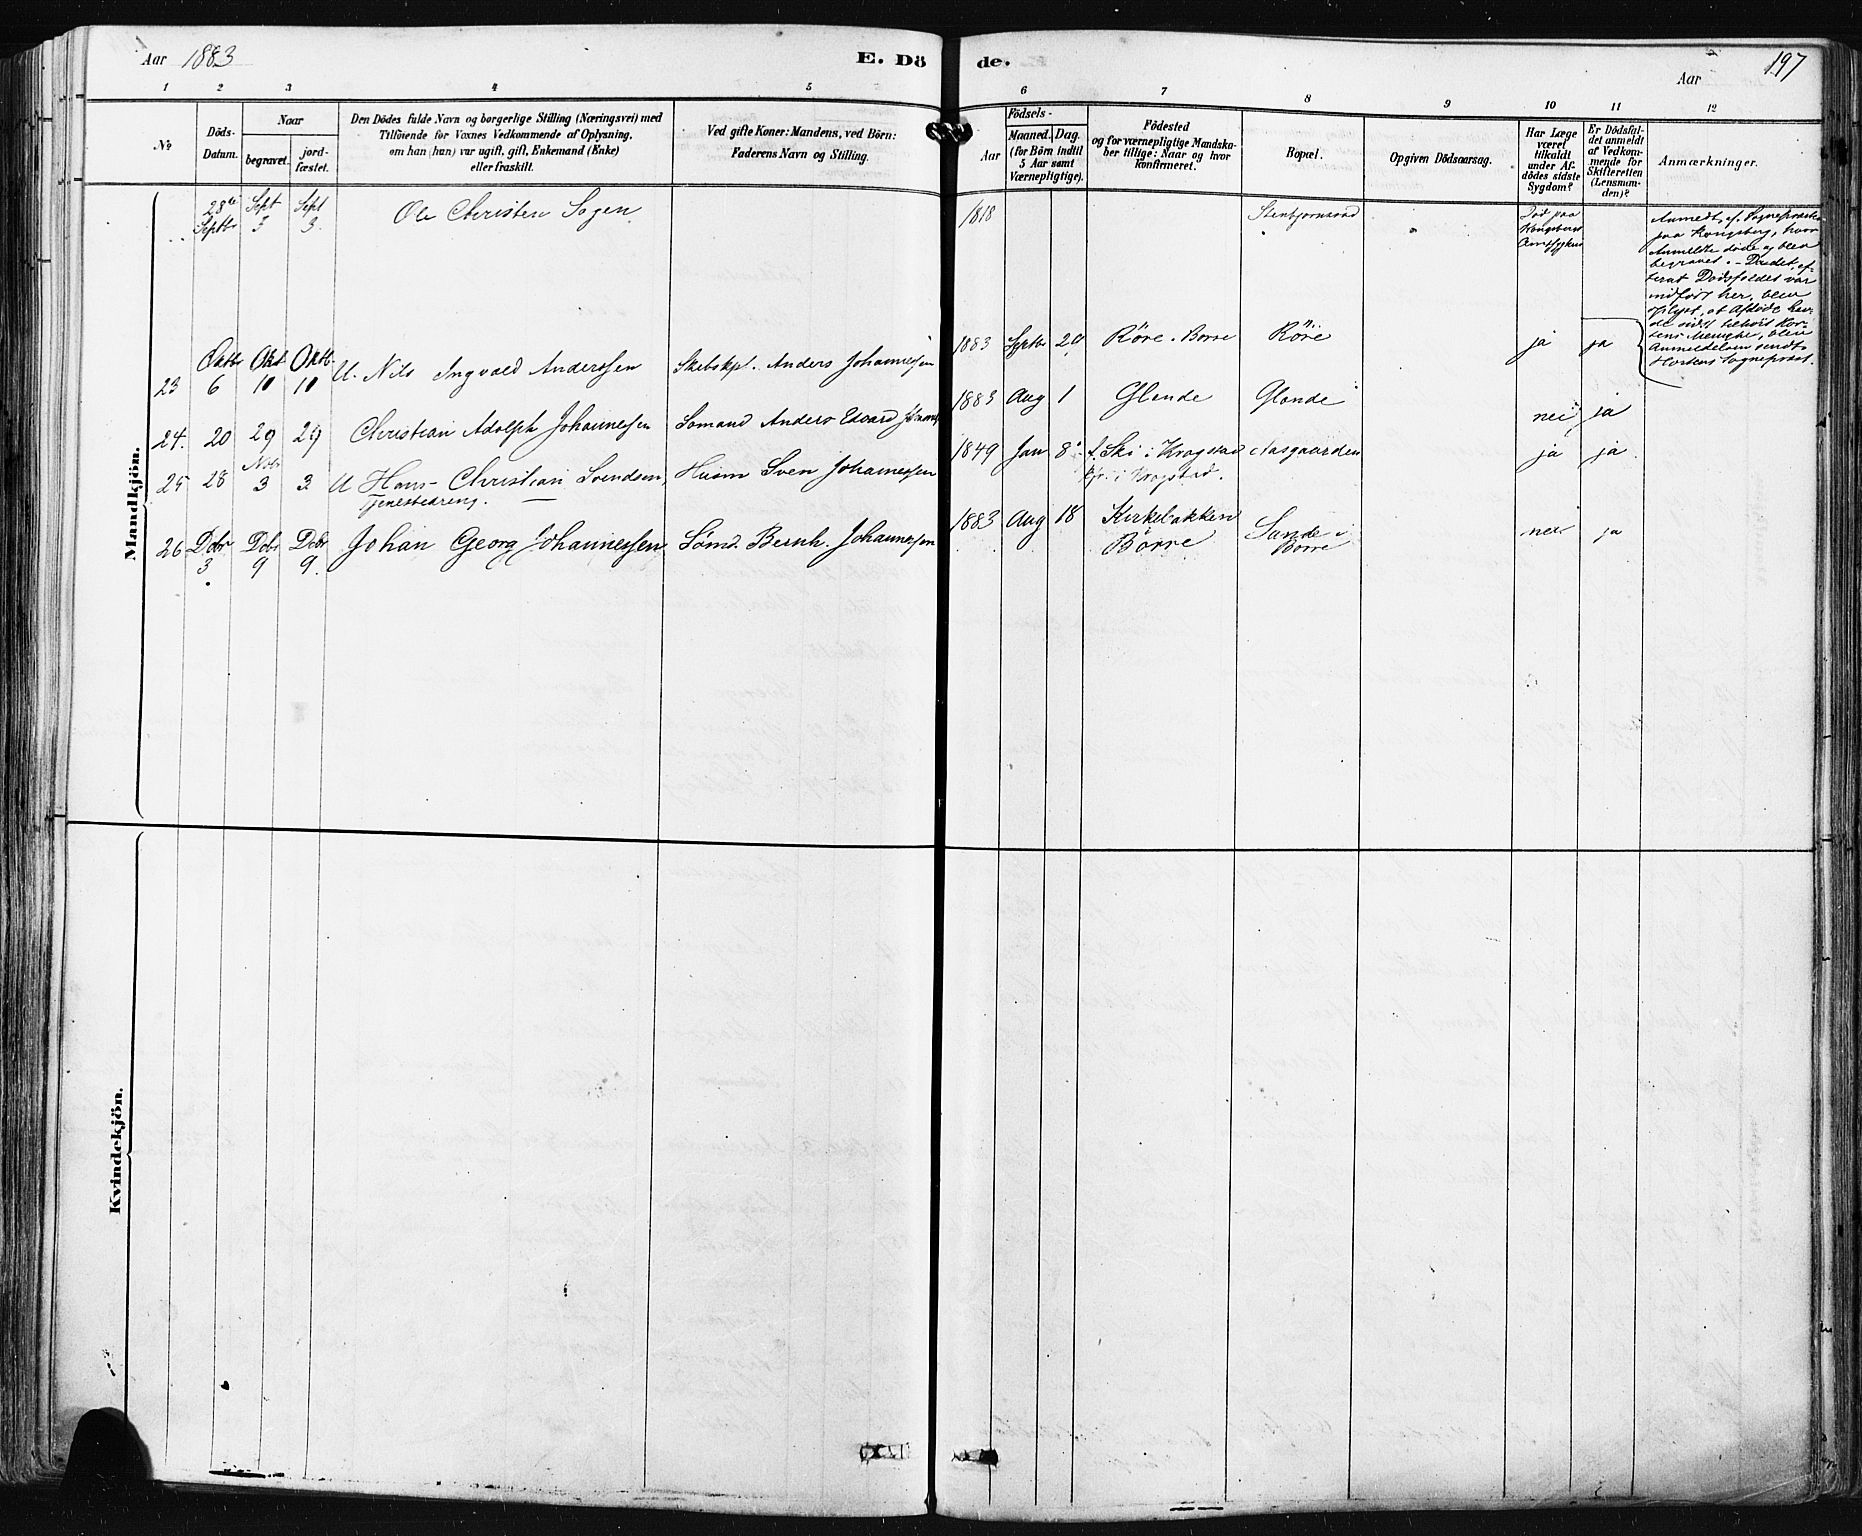 Aar 1883
E. Dö
de.
Aar
197
1 2 3 4 5 6 7 8 9 10 11 12
No
Döds-
Datum.
Naar
begravet.
jord-
fæstet.
Den Dödes fulde Navn og borgerlige Stilling (Næringsvei) med
Tilföiende for Voxnes Vedkommende af Oplysning,
om han (hun) var ugift, gift, Enkemand (Enke)
eller fraskilt.
Ved gifte Koner: Mandens, ved Börn:
Faderens Navn og Stilling.
Födsels-
Aar
Maaned. Dag.
(for Börn indtil
5 Aar samt
Værnepligtige).
Födested
og for værnepligtige Mandska-
ber tillige: Naar og hvor
konfirmeret.
Bopæl.
Opgiven Dödsaarsag.
Har Læge
været
tilkaldt
under Af-
dödes sidste
Sygdom?
Er Dödsfal-
det anmeldt
af Vedkom-
mende for
Skifteretten
(Lensman-
den)?
Anmærkninger.
Mandkjön.
28de Septbr Sept 3 Sept 3 Ole Christen Sogen 1818
Død paa
Kongsberg
Anmeldt af Sognepræsten
paa Kongsberg, hvor
Anmeldte døde og blev
begravet.
terat Dødsfaldet var
indført her, blev
oplyst, at Afdøde hav-
de sidst tilhørt Hor-
tens Menighed, blev
Anmeldelsen sendt
Hortens Sognepræst.
23 Oktbr 6 Okt 10 Oktb. 10 U. Nils Ingvald Anderssen Anders Johannessen 1883 Septbr 20 Röre i Borre Röre ja ja
24. 20 29 29 Christian Adolph Johannessen Sömand Anders Edvard 1883 Aug 1 Glende Glende nei ja
25 28 Nobr 3 3 U Hans Christian Svendsen, Husm Sven Johannessen 1849 Jan 8 f. Ski i Krogstad Aasgaarden ja ja
Tjenestedreng.
i Krogstad.
26 Dcbr 3 Dcbr 9 Dcbr 9. Johan Georg Johannessen Sömd. Bernh. Johannessen 1883 Aug 18 Kirkebakken
Borre Sande i
Borre nei ja
Kvindekjön.